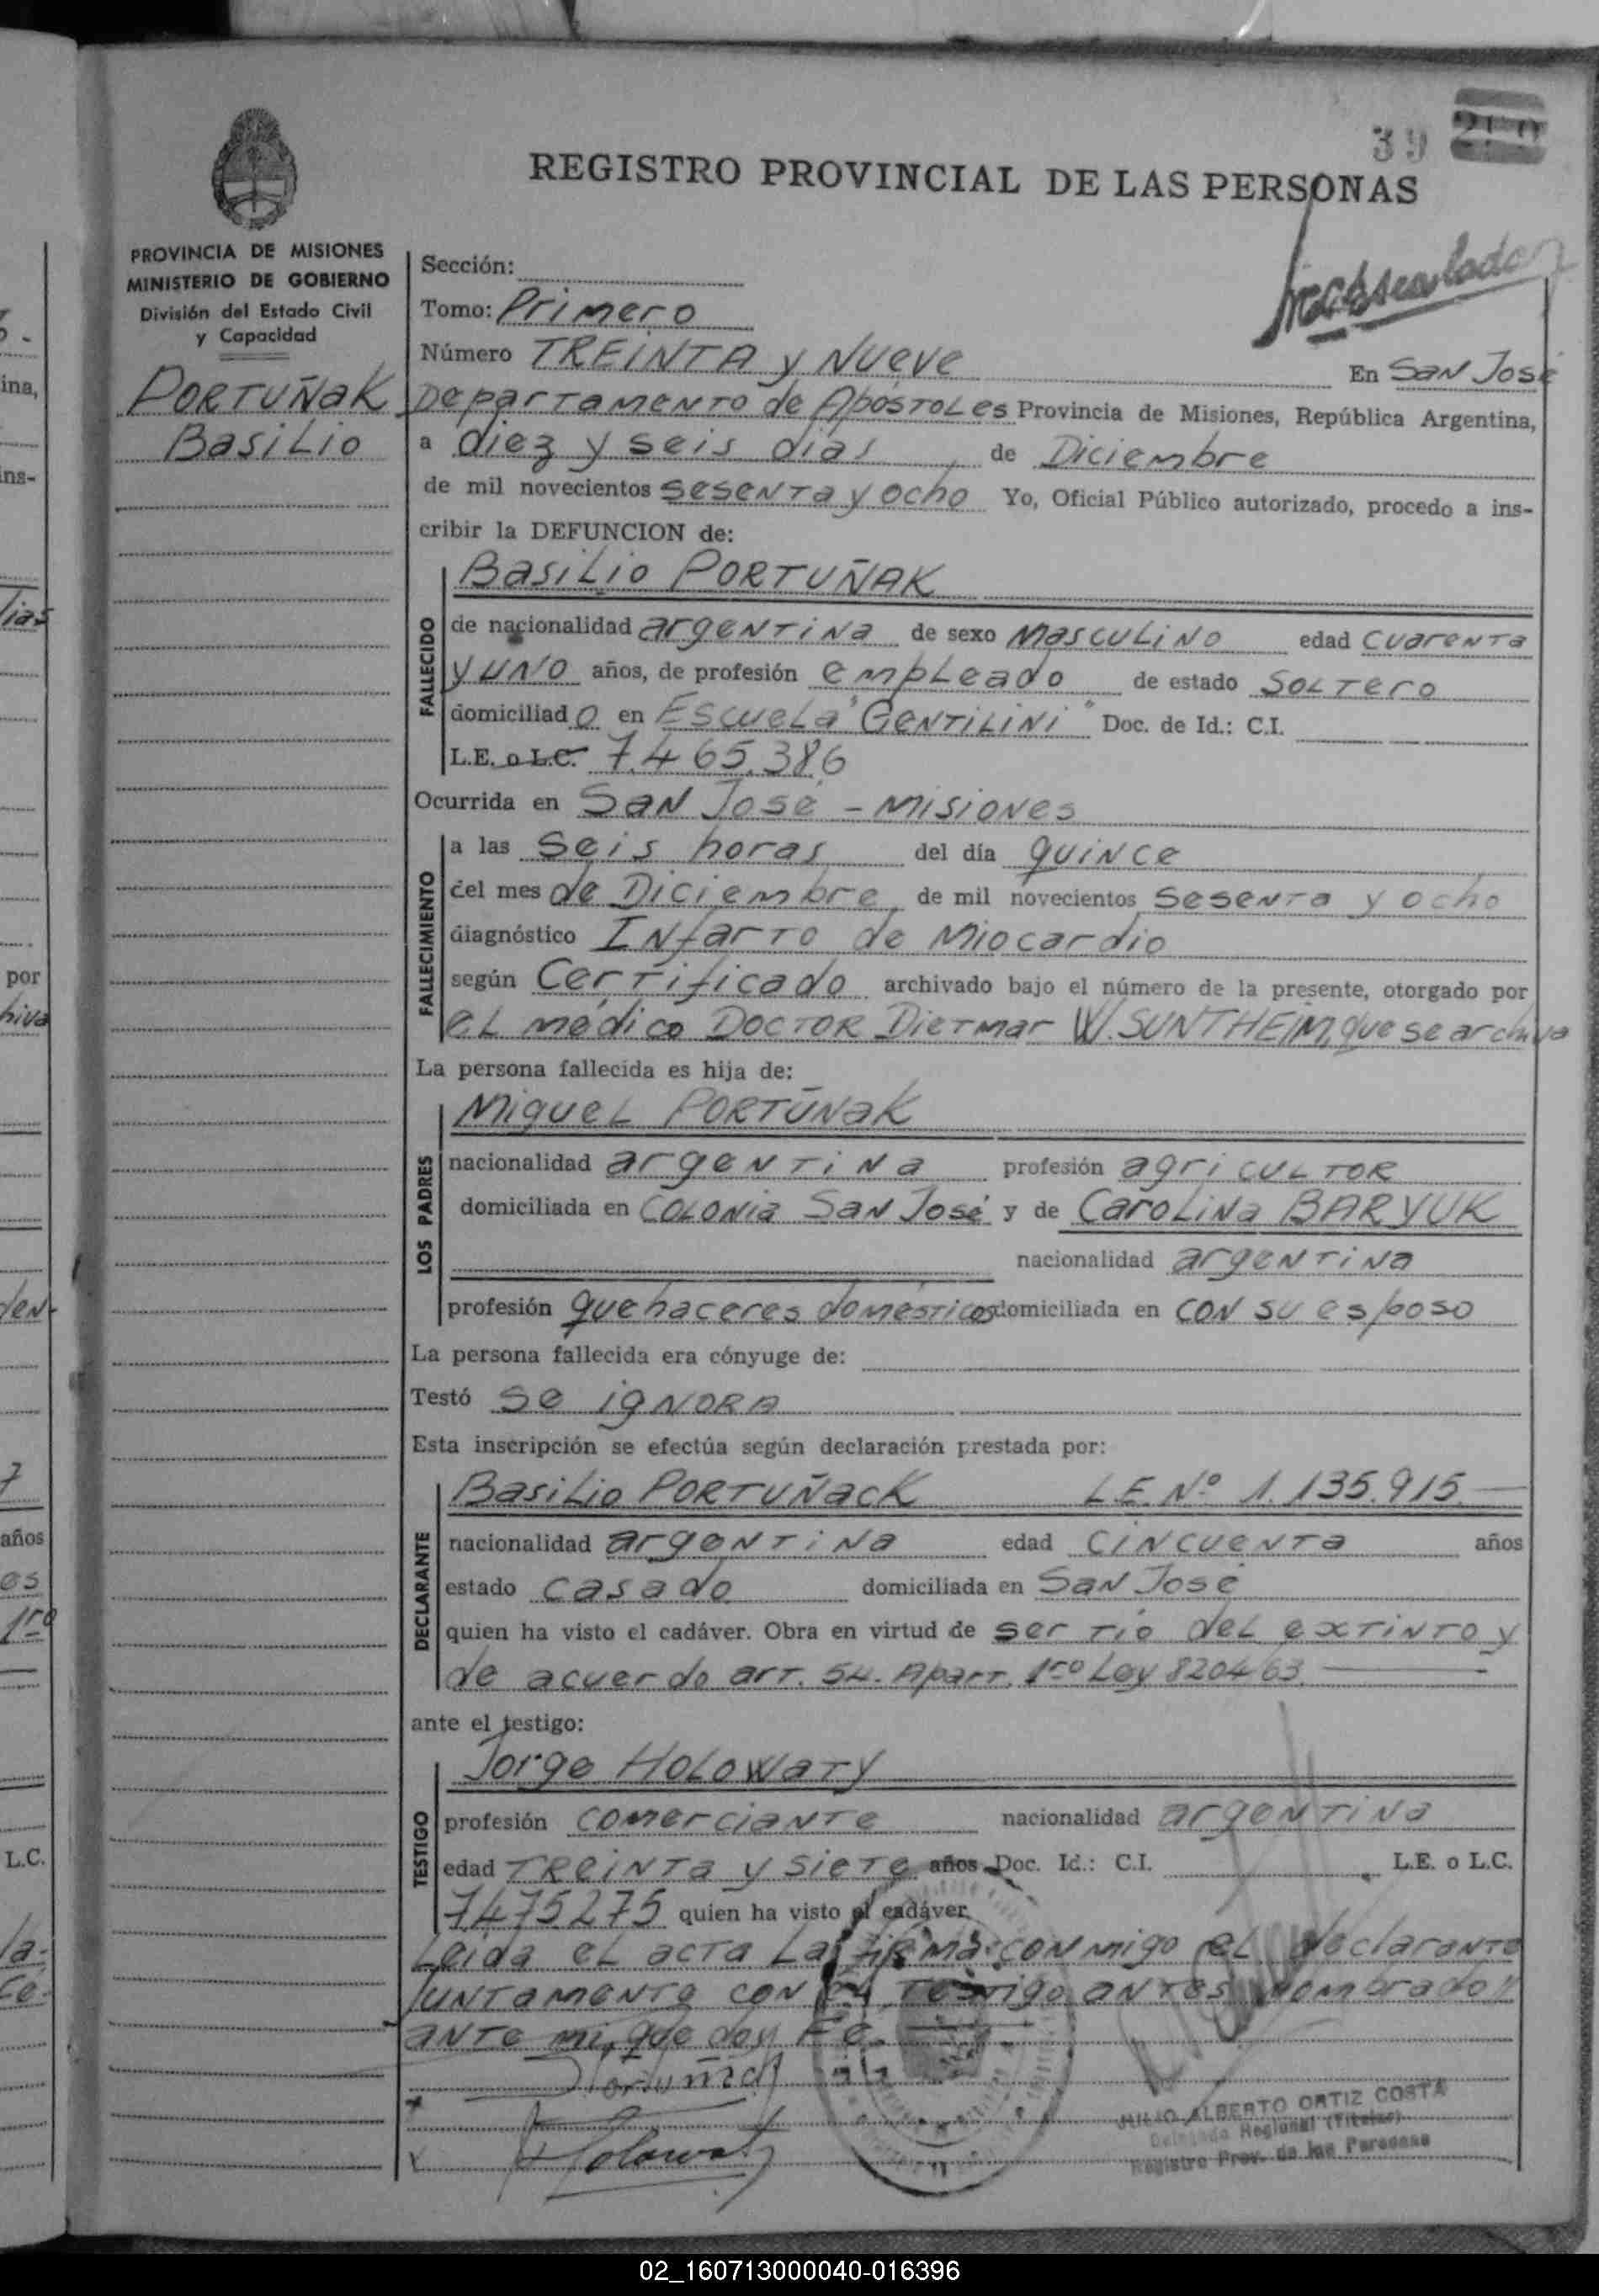 39
REGISTRO PROVINCIAL DE LAS PERSONAS
PROVINCIA DE MISIONES
MINISTERIO DE GOBIERNO
División del Estado Civil
y Capacidad
PORTUÑAK
Basilio
Sección:
Tomo: Primero
Número TREINTA y Nueve En San José
Departamento de Apóstoles Provincia de Misiones, República Argentina,
a diez y seis dias de Diciembre
de mil novecientos sesenta y ocho Yo, Oficial Público autorizado, procedo a ins-
cribir la DEFUNCION de:
Basilio PORTUÑAK
FALLECIDO
de nacionalidad argentina de sexo masculino edad cuarenta
y uno años, de profesión empleado de estado soltero
domiciliado en Escuela "GENTILINI" Doc. de Id.: C.I.
L.E. o L.C. 7.465.386
Ocurrida en San José - Misiones
FALLECIMIENTO
a las seis horas del día quince
del mes de Diciembre de mil novecientos sesenta y ocho
diagnóstico Infarto de Miocardio
según Certificado archivado bajo el número de la presente, otorgado por
el médico DOCTOR Dietmar W. SUNTHEIM, que se archiva
La persona fallecida es hija de:
LOS PADRES
Miguel PORTUÑAK
nacionalidad argentina profesión agricultor
domiciliada en Colonia San José y de Carolina BARYUK
nacionalidad argentina
profesión quehaceres domésticos domiciliada en con su esposo
La persona fallecida era cónyuge de:
Testó se ignora
Esta inscripción se efectúa según declaración prestada por:
DECLARANTE
Basilio PORTUÑACK L.E. Nº 1.135.915
nacionalidad argentina edad cincuenta años
estado casado domiciliada en San José
quien ha visto el cadáver. Obra en virtud de ser tio del extinto y
de acuerdo art. 54. Apart. 1ro Ley 8204/63.
ante el testigo:
TESTIGO
Jorge HOLOWATY
profesión comerciante nacionalidad argentina
edad Treinta y siete años Doc. Id.: C.I. L.E. o L.C.
7475275 quien ha visto el cadáver
Leida el acta la firma conmigo el declarante
juntamente con el testigo antes nombrado
ante mi, que doy Fé.
Portuñak
Holowaty
JULIO ALBERTO ORTIZ COSTA
Delegado Regional (Titular)
Registro Prov. de las Personas
ina,
ins-
lias
por
hiva
den-
7
años
es
1ro
L.C.
la-
Fe-
02_160713000040-016396